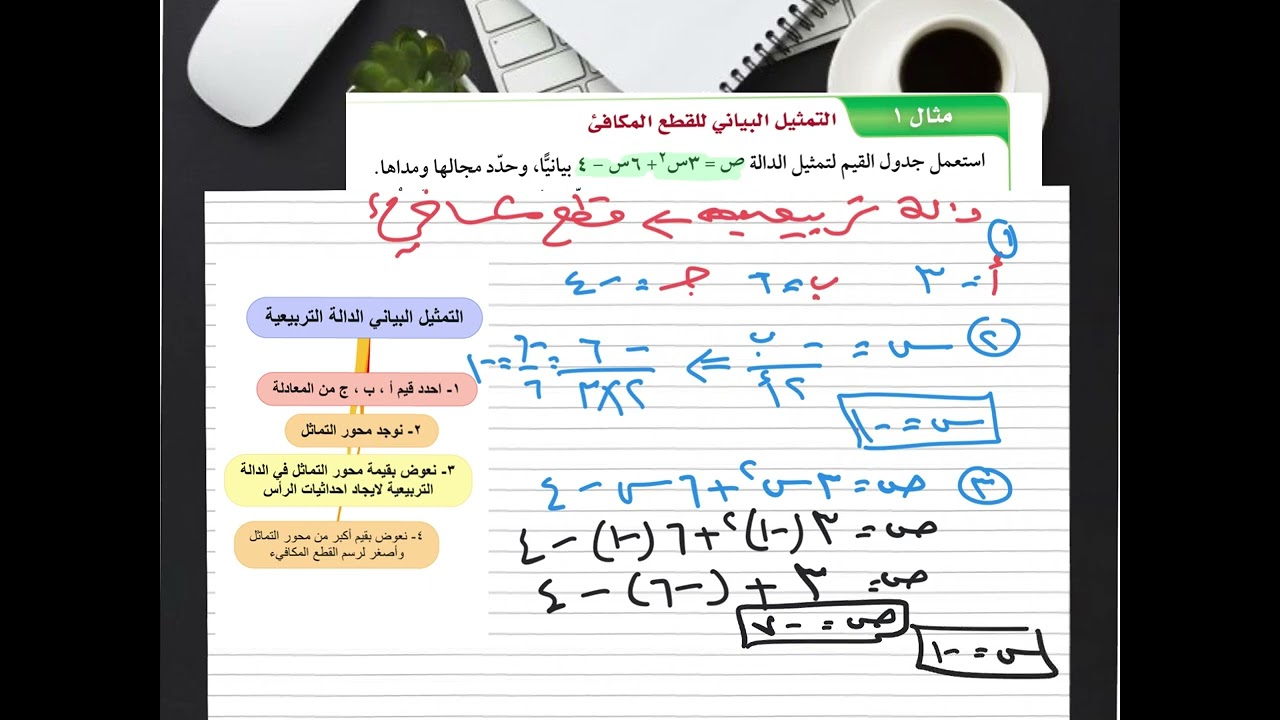 مثال ١ التمثيل البياني للقطع المكافئ
استعمل جدول القيم لتمثيل الدالة ص = ٣س٢ + ٦س – ٤ بيانيًّا، وحدّد مجالها ومداها.
دالة تربيعيه ← قطع مكافئ
١ أ = ٣ ب = ٦ جـ = -٤
٢ س = -ب/٢أ ⇐ -٦/٢×٣ = -٦/٦ = -١
س = -١
٣ ص = ٣س٢ + ٦س - ٤
ص = ٣(-١)٢ + ٦(-١) - ٤
ص = ٣ + (-٦) - ٤
ص = -٧
س = -١
التمثيل البياني الدالة التربيعية
١- احدد قيم أ ، ب ، ج من المعادلة
٢- نوجد محور التماثل
٣- نعوض بقيمة محور التماثل في الدالة
التربيعية لايجاد احداثيات الرأس
٤- نعوض بقيم أكبر من محور التماثل
وأصغر لرسم القطع المكافيء